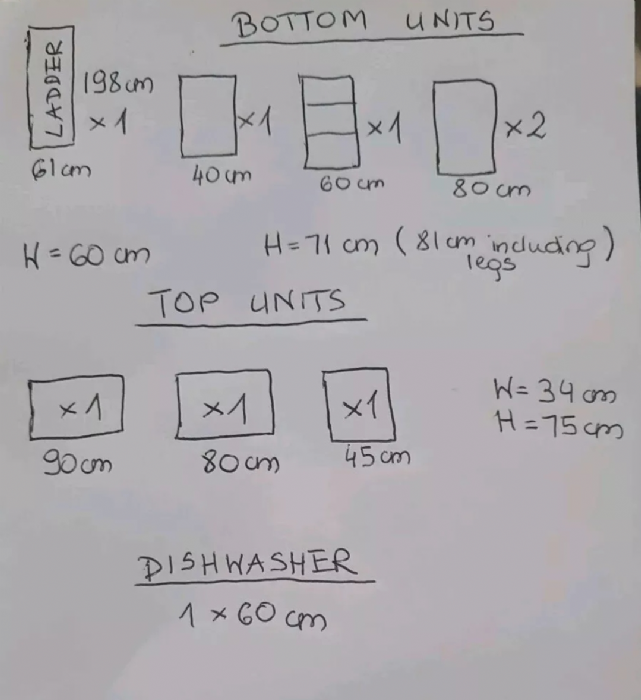 BOTTOM UNITS
LADDER
198cm
×1
61cm
×1
40cm
×1
60cm
×2
80cm
W=60cm
H=71cm (81cm including legs)
TOP UNITS
×1
90cm
×1
80cm
×1
45cm
W=34cm
H=75cm
DISHWASHER
1×60cm